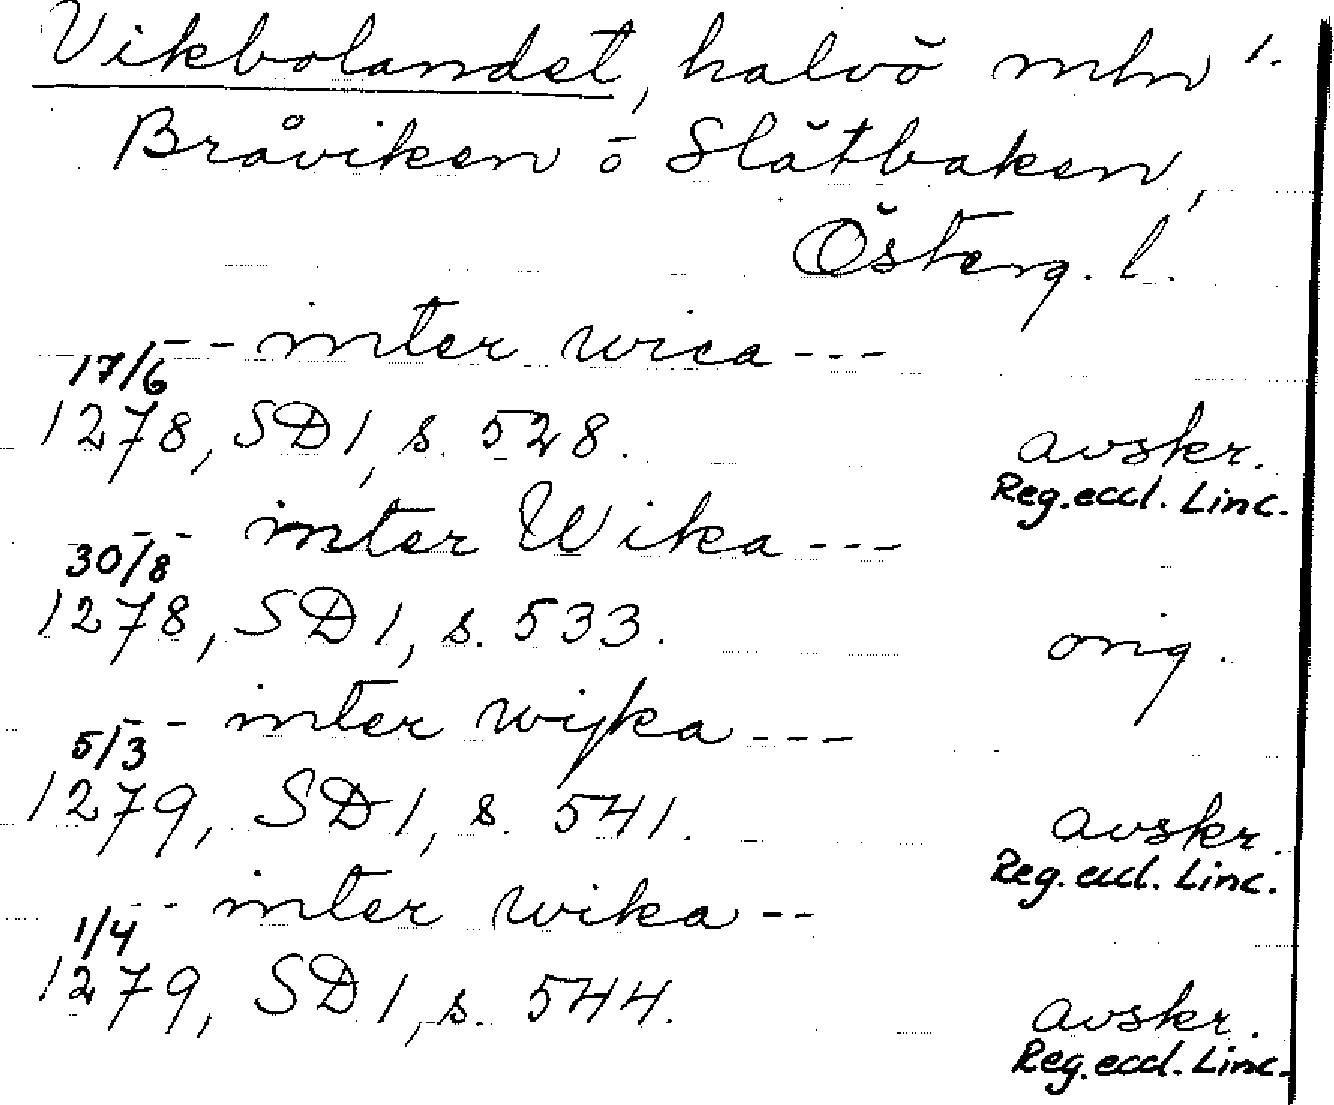 Vikbolandet, halvö mln 1.
Bråviken o Slätbaken,
Österg. l.
--- inter wica ---
17/6
1278, SD 1, s. 528. avskr.
Reg. eccl. Linc.
--- inter Wika ---
30/8
1278, SD 1, s. 533. orig.
--- inter wijka ---
5/3
1279, SD 1, s. 541. avskr.
Reg. eccl. Linc.
--- inter wika --
1/4
1279, SD 1, s. 544. avskr.
Reg. eccl. Linc.